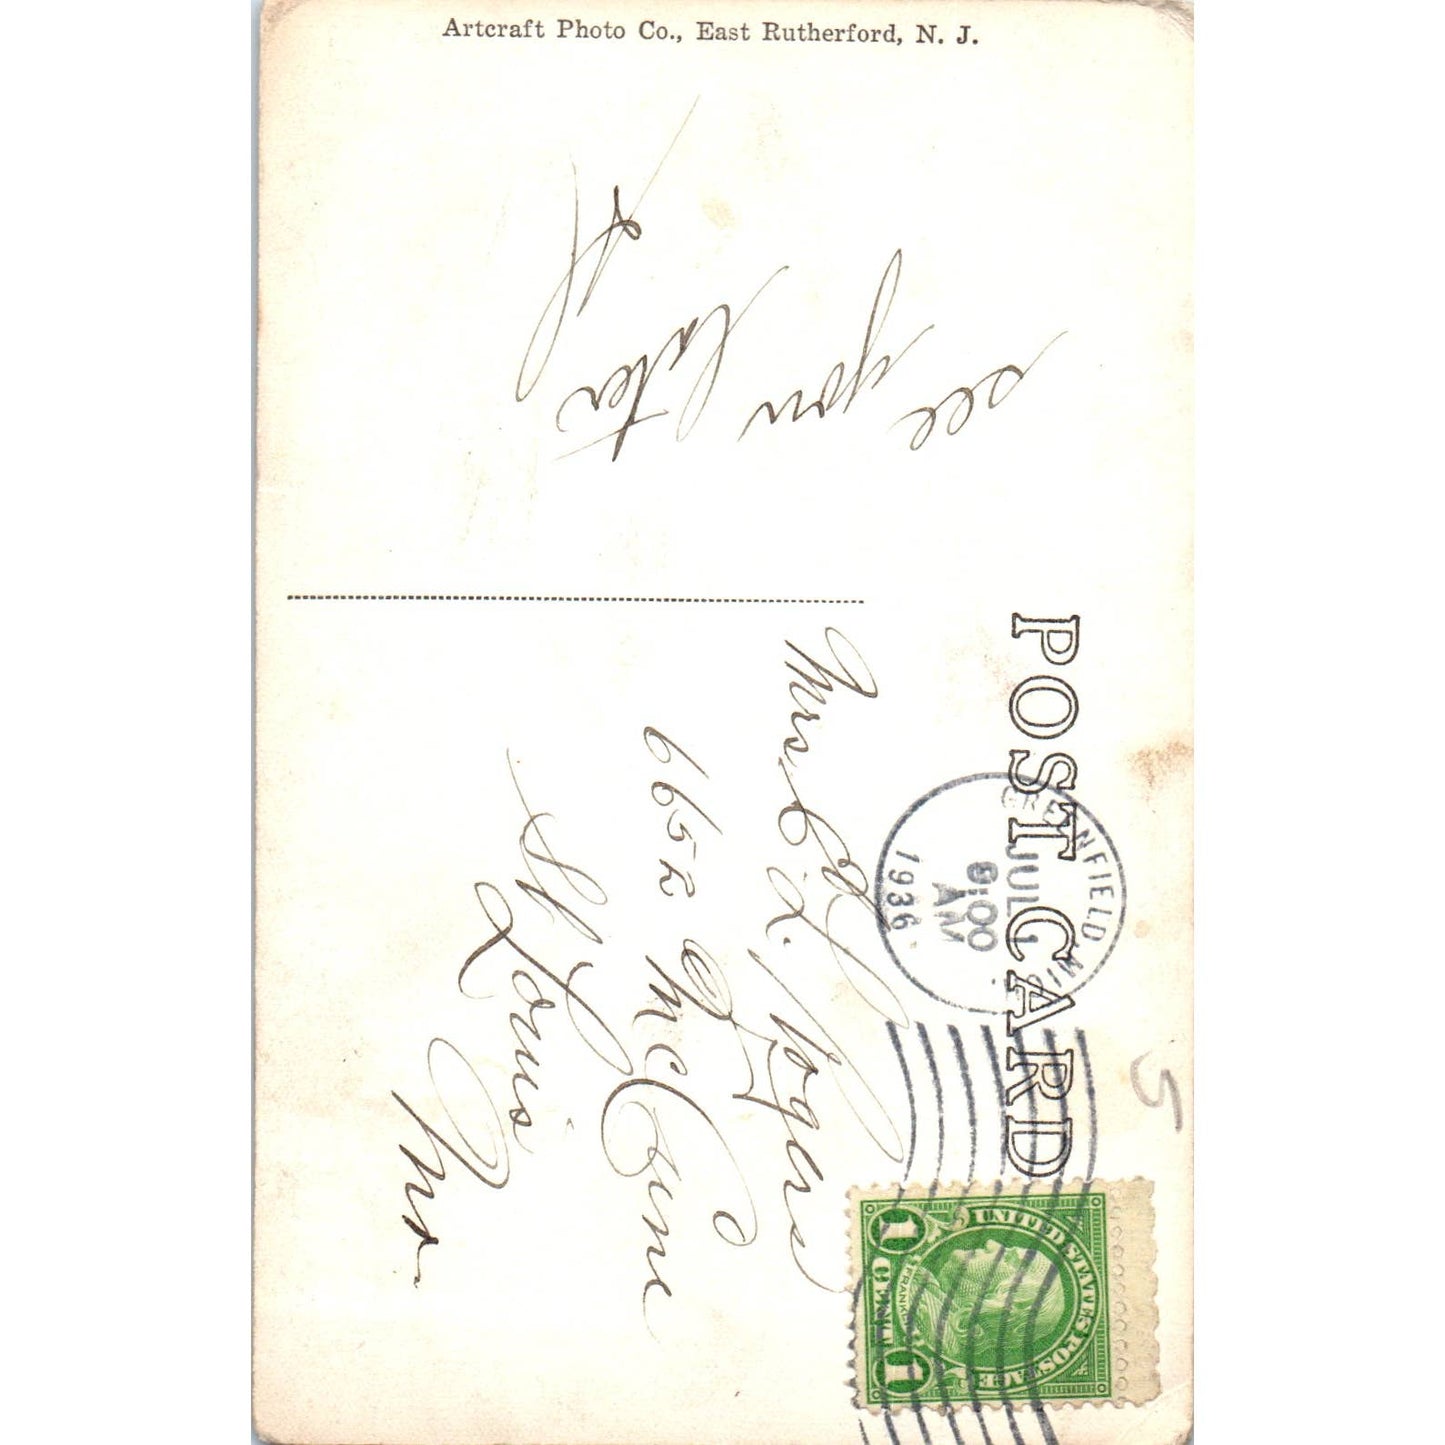 Artcraft Photo Co., East Rutherford, N. J.
see you later
POST CARD
GREENFIELD, MI
JUL 1
9:00
AM
1936
Mrs. Ed L. Rogers
6652
St. Louis
Mo.
UNITED STATES POSTAGE
FRANKLIN
1 CENT 1
5